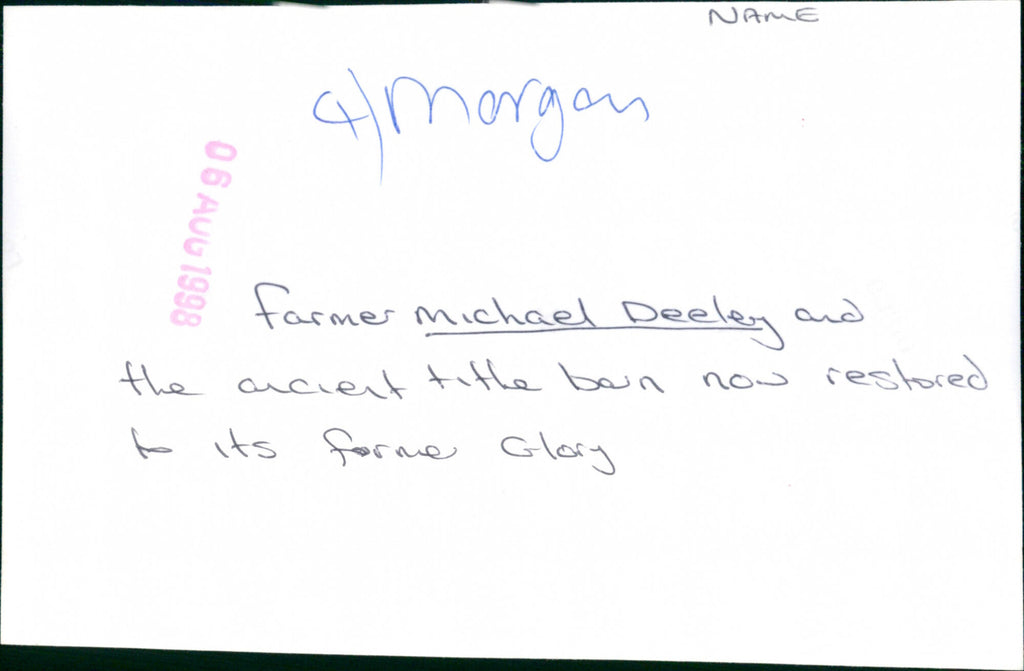 NAME
4) Morgan
06 AUG 1998
Farmer Michael Deeley and
the ancient tithe barn now restored
to its former Glory